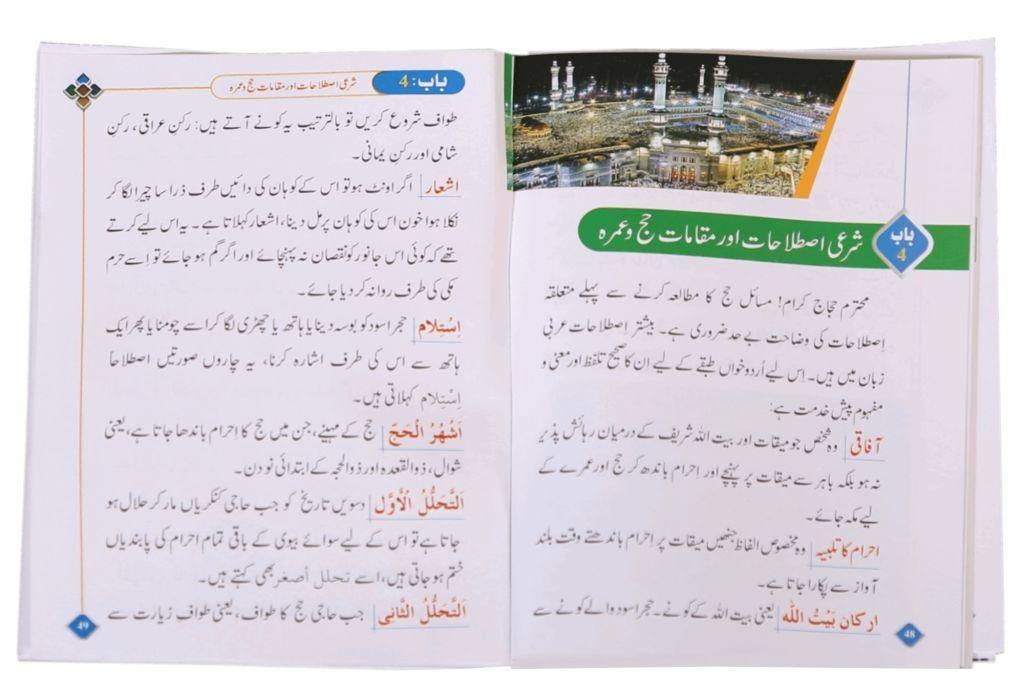 باب 4
شرعی اصطلاحات اور مقامات حج و عمرہ
محترم حجاج کرام! مسائل حج کا مطالعہ کرنے سے پہلے متعلقہ
اِصطلاحات کی وضاحت بے حد ضروری ہے۔ بیشتر اِصطلاحات عربی
زبان میں ہیں۔ اِس لیے اُردو خواں طبقے کے لیے اِن کا صحیح تلفظ اور معنی و
مفہوم پیش خدمت ہے:
آفاقی وہ شخص جو میقات اور بیت اللہ شریف کے درمیان رہائش پذیر
نہ ہو بلکہ باہر سے میقات پر پہنچے اور اِحرام باندھ کر حج اور عمرے کے
لیے مکہ جائے۔
احرام کا تلبیہ وہ مخصوص الفاظ جنھیں میقات پر اِحرام باندھتے وقت بلند
آواز سے پکارا جاتا ہے۔
ارکان بَیْتُ اللّٰه یعنی بیت اللہ کے کونے۔ حجر اسود والے کونے سے
48
باب: 4
شرعی اصطلاحات اور مقامات حج و عمرہ
طواف شروع کریں تو بالترتیب یہ کونے آتے ہیں: رکنِ عراقی، رکنِ
شامی اور رکنِ یمانی۔
اشعار اگر اونٹ ہو تو اس کے کوہان کی دائیں طرف ذرا سا چیرا لگا کر
نکلا ہوا خون اس کی کوہان پر مل دینا، اشعار کہلاتا ہے۔ یہ اس لیے کرتے
تھے کہ کوئی اس جانور کو نقصان نہ پہنچائے اور اگر گم ہو جائے تو اِسے حرم
مکی کی طرف روانہ کر دیا جائے۔
اِسْتِلَام حجر اسود کو بوسہ دینا یا ہاتھ یا چھڑی لگا کر اسے چومنا یا پھر ایک
ہاتھ سے اس کی طرف اشارہ کرنا، یہ چاروں صورتیں اصطلاحاً
اِسْتِلَام کہلاتی ہیں۔
اَشْهُرُ الْحَجّ حج کے مہینے، جن میں حج کا اِحرام باندھا جاتا ہے، یعنی
شوال، ذوالقعدہ اور ذوالحجہ کے ابتدائی نو دن۔
اَلتَّحَلُّلُ الْاَوَّل دسویں تاریخ کو جب حاجی کنکریاں مار کر حلال ہو
جاتا ہے تو اس کے لیے سوائے بیوی کے باقی تمام احرام کی پابندیاں
ختم ہو جاتی ہیں، اسے تحلل اَصغر بھی کہتے ہیں۔
اَلتَّحَلُّلُ الثَّانِی جب حاجی حج کا طواف، یعنی طواف زیارت سے
49